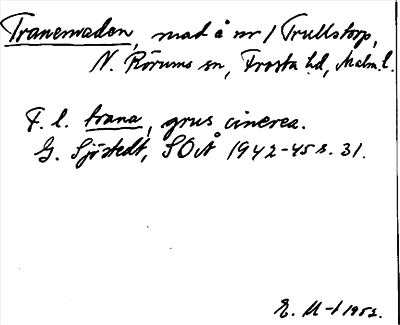 Tranemaden, mad å nr 1 Trullstorp,
N. Rörums sn, Frosta hd, Malm. l.
F. l. trana, grus cinerea.
G. Sjöstedt, SOÅ 1942-45 s. 31.
E. M-t 1952.